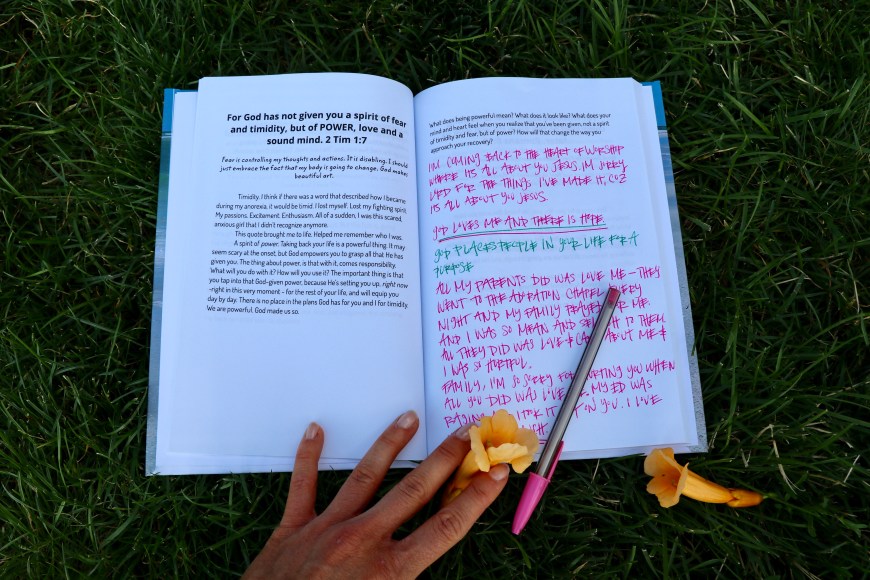 For God has not given you a spirit of fear
and timidity, but of POWER, love and a
sound mind. 2 Tim 1:7
Fear is controlling my thoughts and actions. It is disabling. I should
just embrace the fact that my body is going to change. God makes
beautiful art.
Timidity. I think if there was a word that described how I became
during my anorexia, it would be timid. I lost myself. Lost my fighting spirit.
My passions. Excitement. Enthusiasm. All of a sudden, I was this scared,
anxious girl that I didn't recognize anymore.
This quote brought me to life. Helped me remember who I was.
A spirit of power. Taking back your life is a powerful thing. It may
seem scary at the onset, but God empowers you to grasp all that He has
given you. The thing about power, is that with it, comes responsibility.
What will you do with it? How will you use it? The important thing is that
you tap into that God-given power, because He's setting you up, right now
-right in this very moment - for the rest of your life, and will equip you
day by day. There is no place in the plans God has for you and I for timidity.
We are powerful. God made us so.
What does being powerful mean? What does it look like? What does your
mind and heart feel when you realize that you've been given, not a spirit
of timidity and fear, but of power? How will that change the way you
approach your recovery?
I'M COMING BACK TO THE HEART OF WORSHIP
WHERE ITS ALL ABOUT YOU JESUS. IM SORRY
LORD FOR THE THINGS I'VE MADE IT, CUZ
ITS ALL ABOUT YOU JESUS.
GOD LOVES ME AND THERE IS HOPE
GOD PLACES PEOPLE IN YOUR LIFE FOR A
PURPOSE
ALL MY PARENTS DID WAS LOVE ME - THEY
WENT TO THE ADORATION CHAPEL EVERY
NIGHT AND MY FAMILY PRAYED FOR ME
AND I WAS SO MEAN AND SELFISH TO THEM
ALL THEY DID WAS LOVE & CARE ABOUT ME &
I WAS SO HURTFUL.
FAMILY, I'M SO SORRY FOR HURTING YOU WHEN
ALL YOU DID WAS LOVE ME. MY ED WAS
RAGING I TOOK IT ON YOU. I LOVE